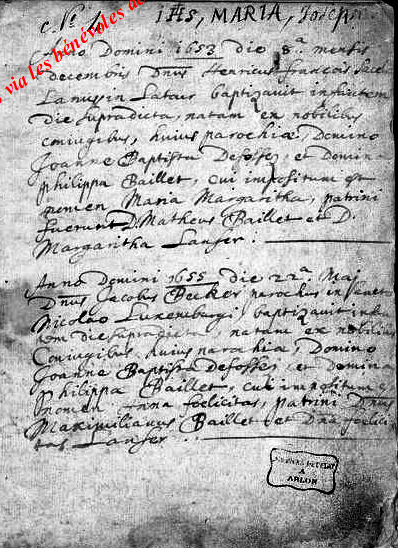 N° 1. IHs, MARIA, Joseph
via les bénévoles de
Anno Domini 1653 die 8ª mensis
decembris Dnus Henricus françois
Lanussin Latour baptizavit infantem
die supradicta, natam ex nobilibus
coniugibus, huius parochiæ, Domino
Joanne Baptista Defosses, et Domina
philippa Baillet, cui impositum est
nomen Maria Margaritha, patrini
fuerunt D. Matheus Baillet et D.
Margaritha Lanser.
Anno Domini 1655 die 22ª Maij
Dnus Jacobus Becker parochus in
Nicolao Luxemburgi, baptizavit
die supradicta, natam ex nobilibus
Coniugibus, huius parochiæ, Domino
Joanne Baptista Defosses, et domina
Philippa Baillet, cui impositum
nomen Anna foelicitas, patrini Dnus
Maximilianus Baillet et Dna foelici
tas Lanser.
A
ARLON